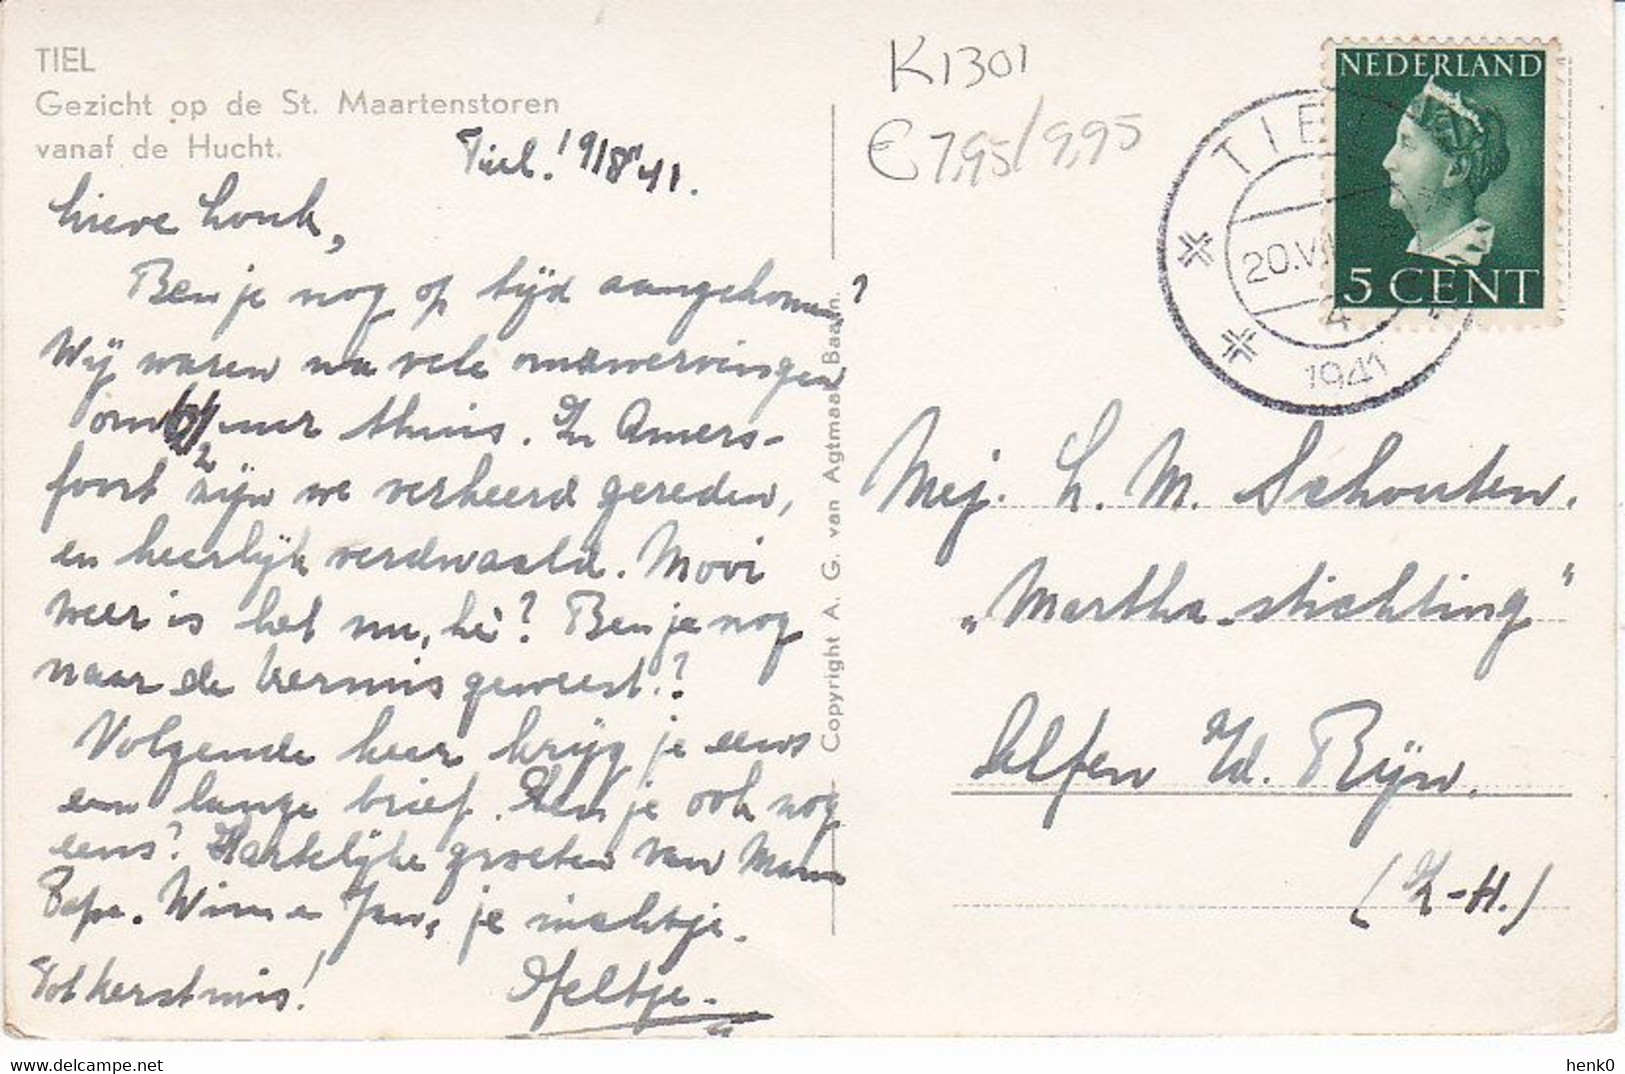 TIEL
Gezicht op de St. Maartenstoren
vanaf de Hucht.
Tiel. 19/8 '41.
Lieve Louk,
Ben je nog op tijd aangekomen?
Wij waren na vele omzwervingen
om uur thuis. In Amers-
foort zijn we verkeerd gereden,
en heerlijk verdwaald. Mooi
weer is het nu, hè? Ben je nog
naar de kermis geweest?
Volgende keer krijg je eens
een lange brief. Ben je ook nog
eens? Hartelijke groeten van Mama
Papa. Wim en Jan, je nichtje.
Tot kerstmis!
Copyright A. G. van Agtmaal, Baarn.
K1301
€ 7,95/9,95
NEDERLAND
5 CENT
TIEL
20.VI
4
1941
Mej. L. M. Schouten.
„Martha-stichting"
Alfen a/d. Rijn.
(Z-H.)
henk0